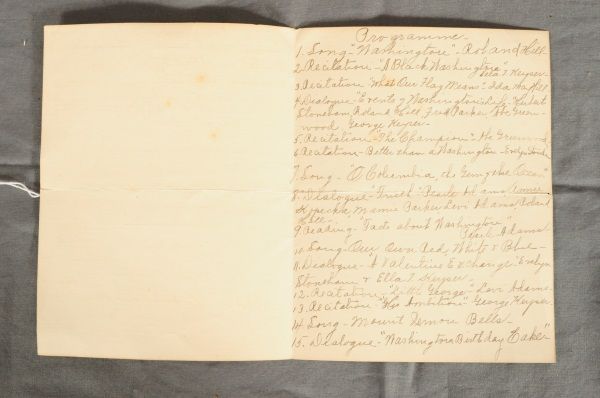 Programme.
1. Song - "Washington" - Roland Hill
2. Recitation - "A Black Washington"
Ella T. Keyser.
3. Recitation "What Our Flag Means". Ida Hill
4. Dialogue - "Events of Washington's Life - Herbert
Stoneham, Roland Hill, Fred Parker, Green-
wood, George Keyser.
5. Recitation - The Champion -
6. Recitation - Better than a Washington - Evelyn
7. Song - "O Columbia, the Gem of the Ocean"
8. Dialogue - "Truth" Pearle Adams,
Mamie Parker, Levi Adams, Roland
Hill -
9. Reading - "Facts about Washington"
Pearle Adams.
10. Song - Our Own Red, White & Blue -
11. Dialogue - "A Valentine Exchange." Evelyn
Stoneham & Ella T. Keyser.
12. Recitation - "Little George" - Levi Adams.
13. Recitation "His Ambition" George Keyser.
14. Song - Mount Vernon Bells.
15. Dialogue - "Washington Birthday Cake"